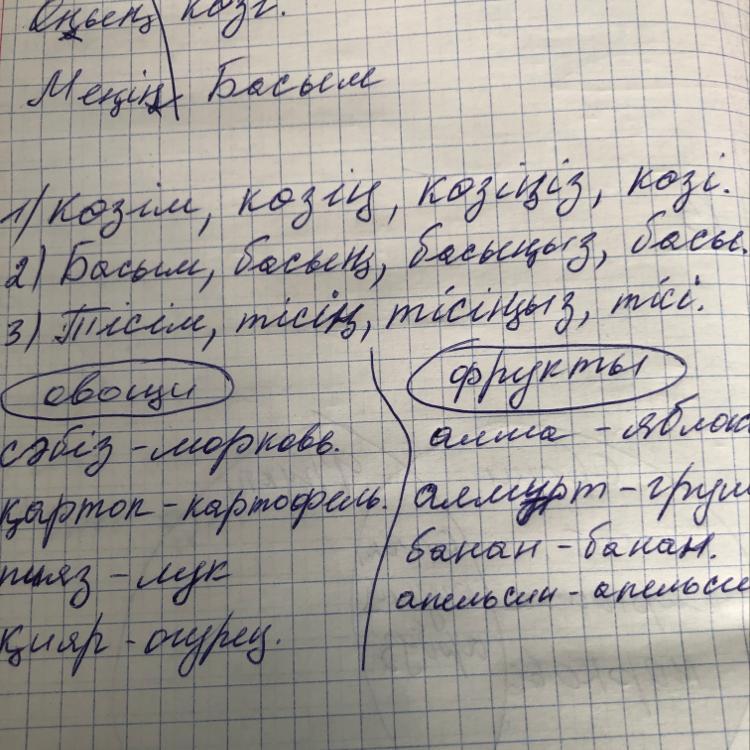 Оңың көзі.
Менің Басым
1) көзім, көзің, көзіңіз, көзі.
2) Басым, басың, басыңыз, басы.
3) Тісім, тісің, тісіңыз, тісі.
овощи
фрукты
сәбіз - морковь.
қартоп - картофель.
пияз - лук
қияр - огурец.
алма - яблок
алмұрт - груш
банан - банан.
апельсин - апельси